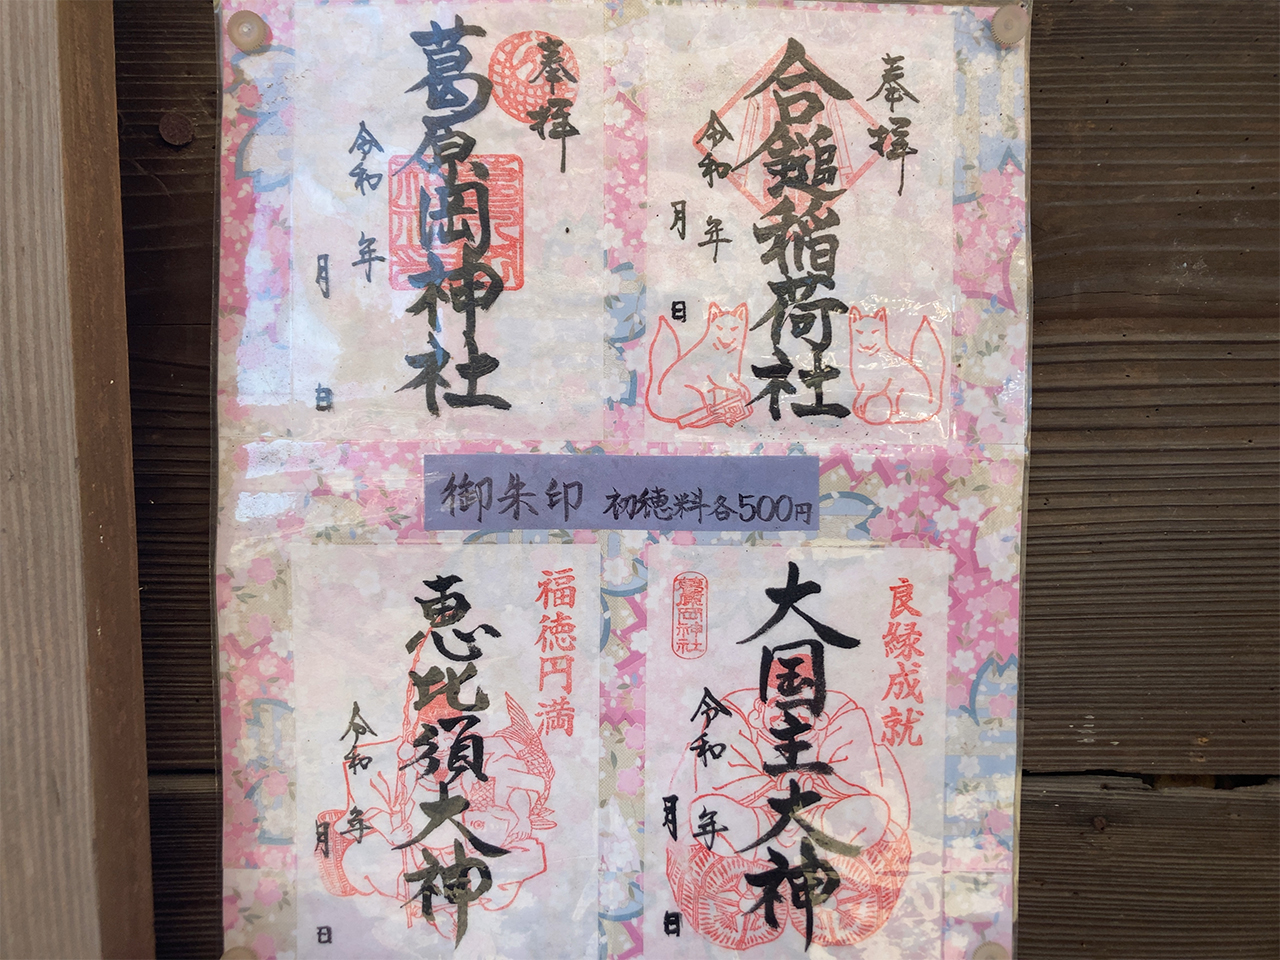 奉拝
葛原岡神社
令和
年
月
日
奉拝
合鎚稲荷社
令和
年
月
日
御朱印 初穂料各500円
福徳円満
恵比須大神
令和
年
月
日
良縁成就
大国主大神
葛原岡神社
令和
年
月
日